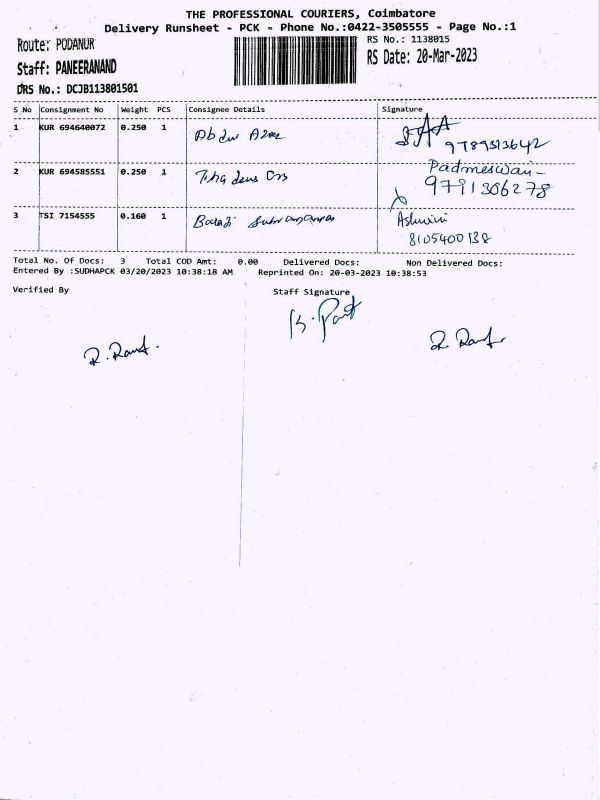 THE PROFESSIONAL COURIERS, Coimbatore
Delivery Runsheet - PCK - Phone No.:0422-3505555 - Page No.:1
Route: PODANUR
RS No.: 1138015
Staff: PANEERANAND
RS Date: 20-Mar-2023
DRS No.: DCJB113801501
S No Consignment No Weight PCS Consignee Details Signature
1 KUR 694640072 0.250 1 Abdul
9789513642
2 KUR 694585551 0.250 1 Padmeswari
9791306278
3 TSI 7154555 0.160 1 Balaji Ashwini
8105400138
Total No. Of Docs: 3 Total COD Amt: 0.00 Delivered Docs: Non Delivered Docs:
Entered By :SUDHAPCK 03/20/2023 10:38:18 AM Reprinted On: 20-03-2023 10:38:53
Verified By Staff Signature